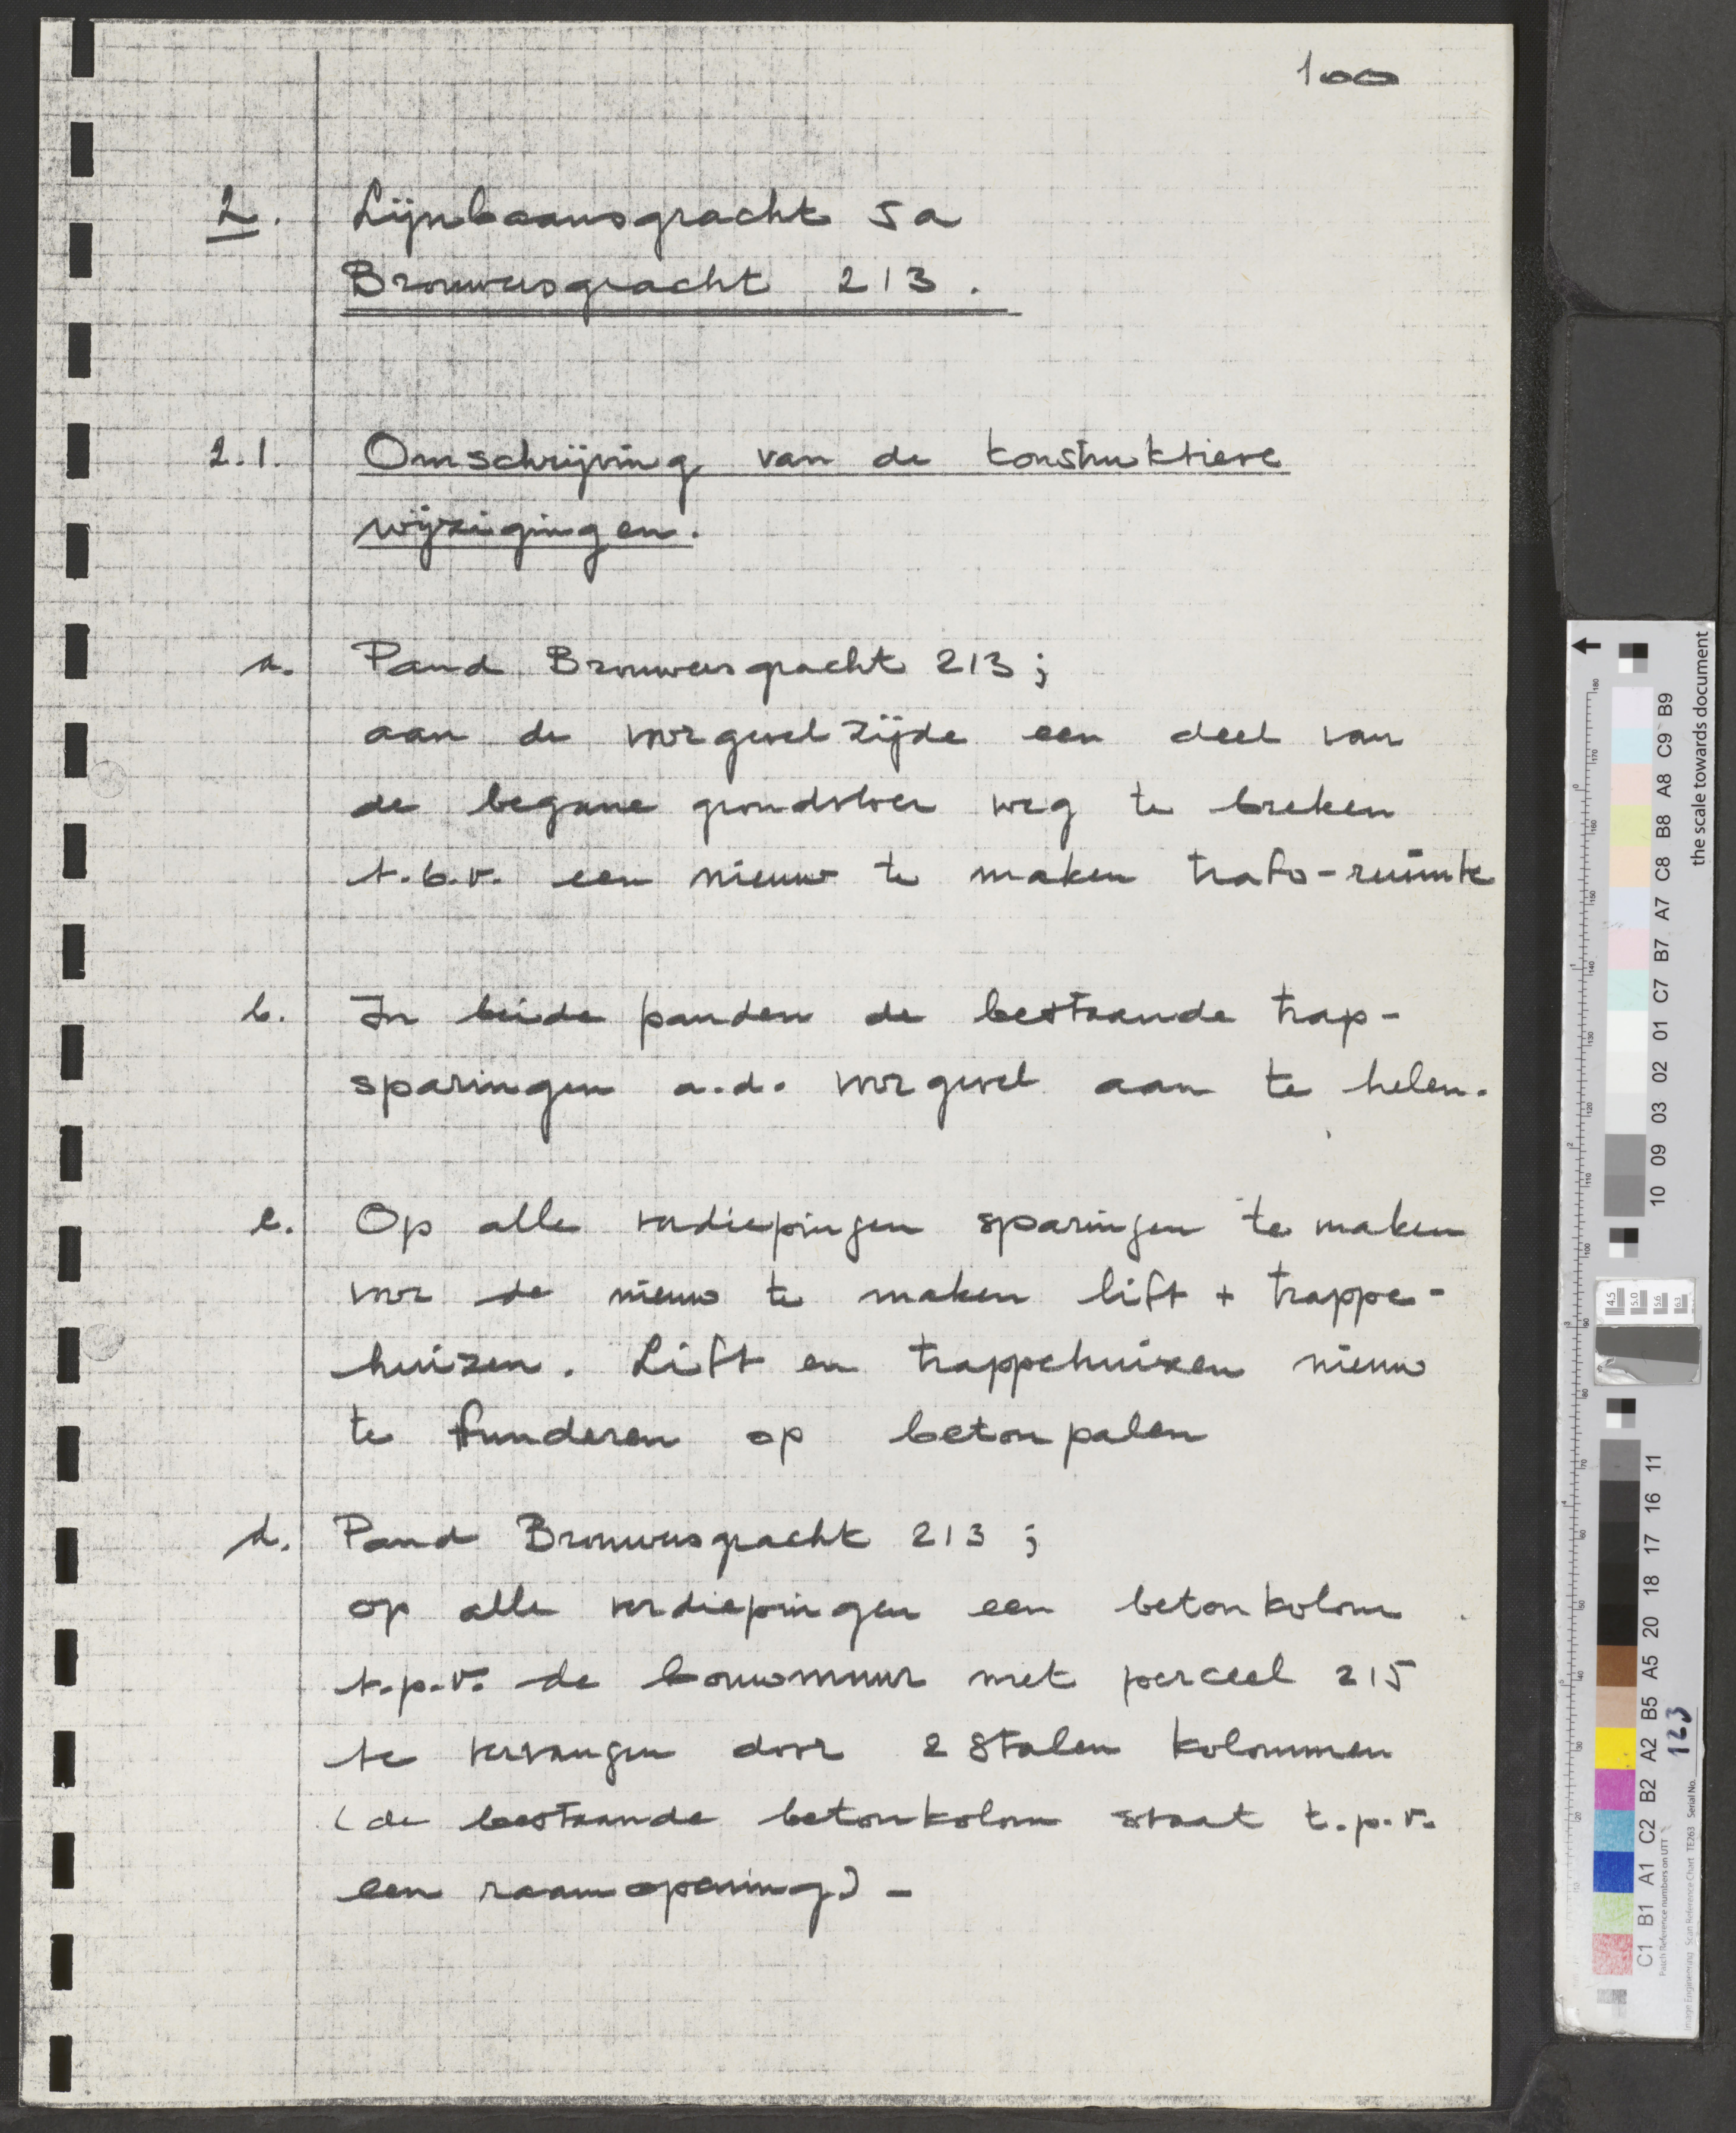 100
2. Lijnbaansgracht 5a
Brouwersgracht 213.
2.1. Omschrijving van de konstruktieve
wijzigingen.
a. Pand Brouwersgracht 213;
aan de voorgevelzijde een deel van
de begane grondvloer weg te breken
t.b.v. een nieuw te maken trafo-ruimte
b. In beide panden de bestaande trap-
sparingen a.d. voorgevel aan te helen.
c. Op alle verdiepingen sparingen te maken
voor de nieuw te maken lift + trappe-
huizen. Lift en trappehuizen nieuw
te funderen op betonpalen
d. Pand Brouwersgracht 213;
op alle verdiepingen een betonkolom
t.p.v. de bouwmuur met perceel 215
te vervangen door 2 stalen kolommen
(de bestaande betonkolom staat t.p.v.
een raamopening) -
the scale towards document
C1 B1 A1 C2 B2 A2 B5 A5 20 18 17 16 11
10 09 03 02 01 C7 B7 A7 C8 B8 A8 C9 B9
4.5
5.0
5.6
6.3
Patch Reference numbers on UTT
Image Engineering Scan Reference Chart TE263 Serial No. 123